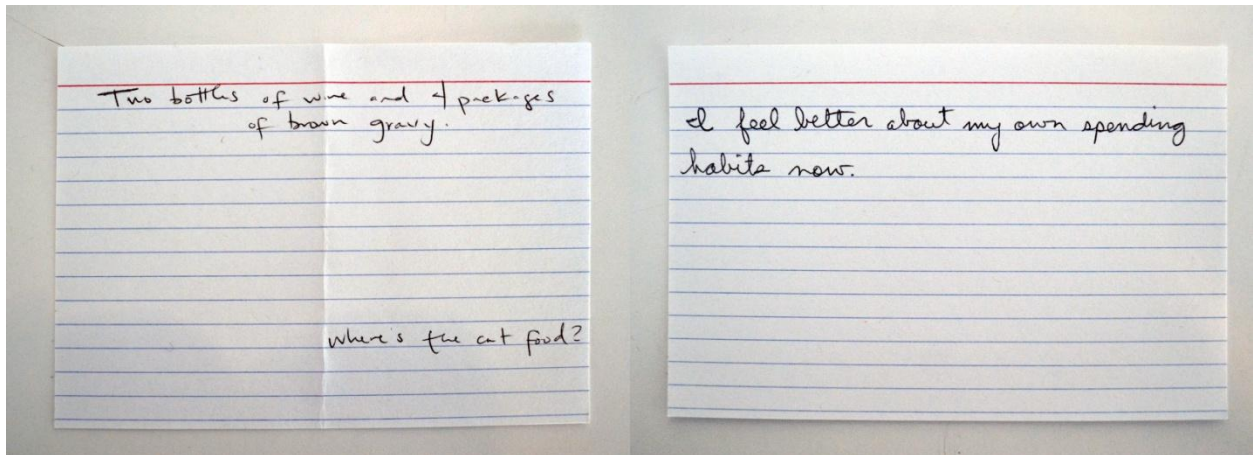 Two bottles of wine and 4 packages
of brown gravy.
where's the cat food?
I feel better about my own spending
habits now.